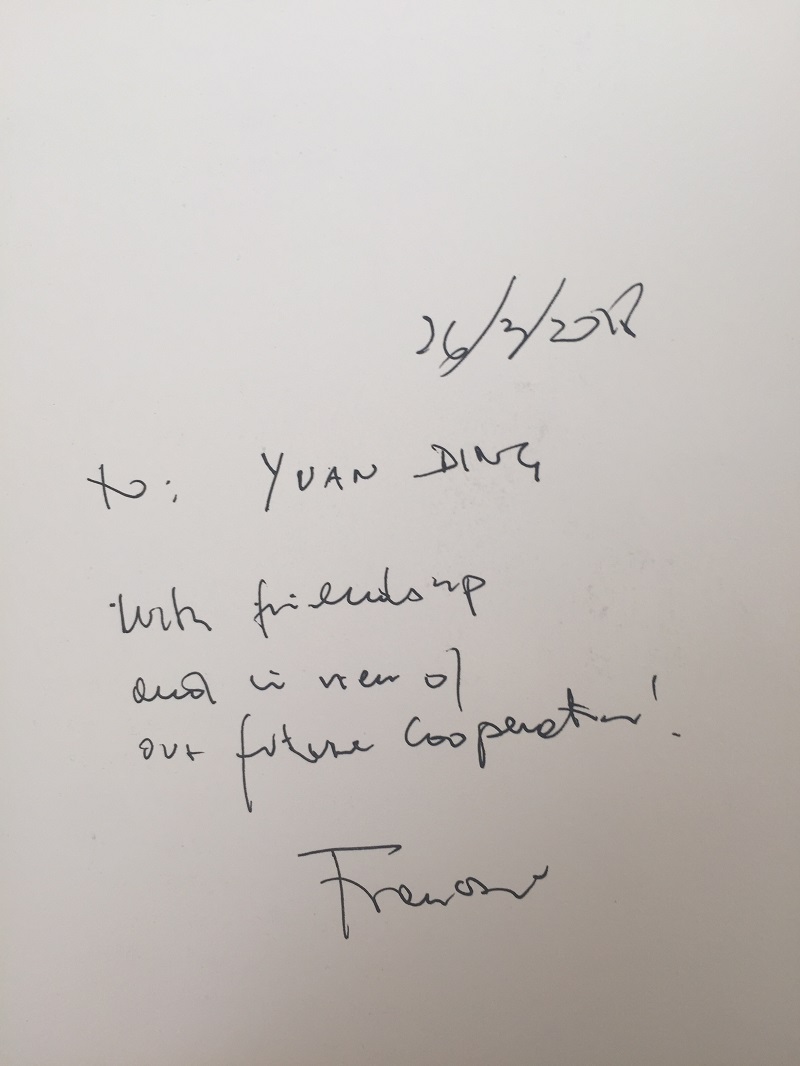 26/3/2018
to: YUAN DING
With friendship
and in view of
our future cooperation!